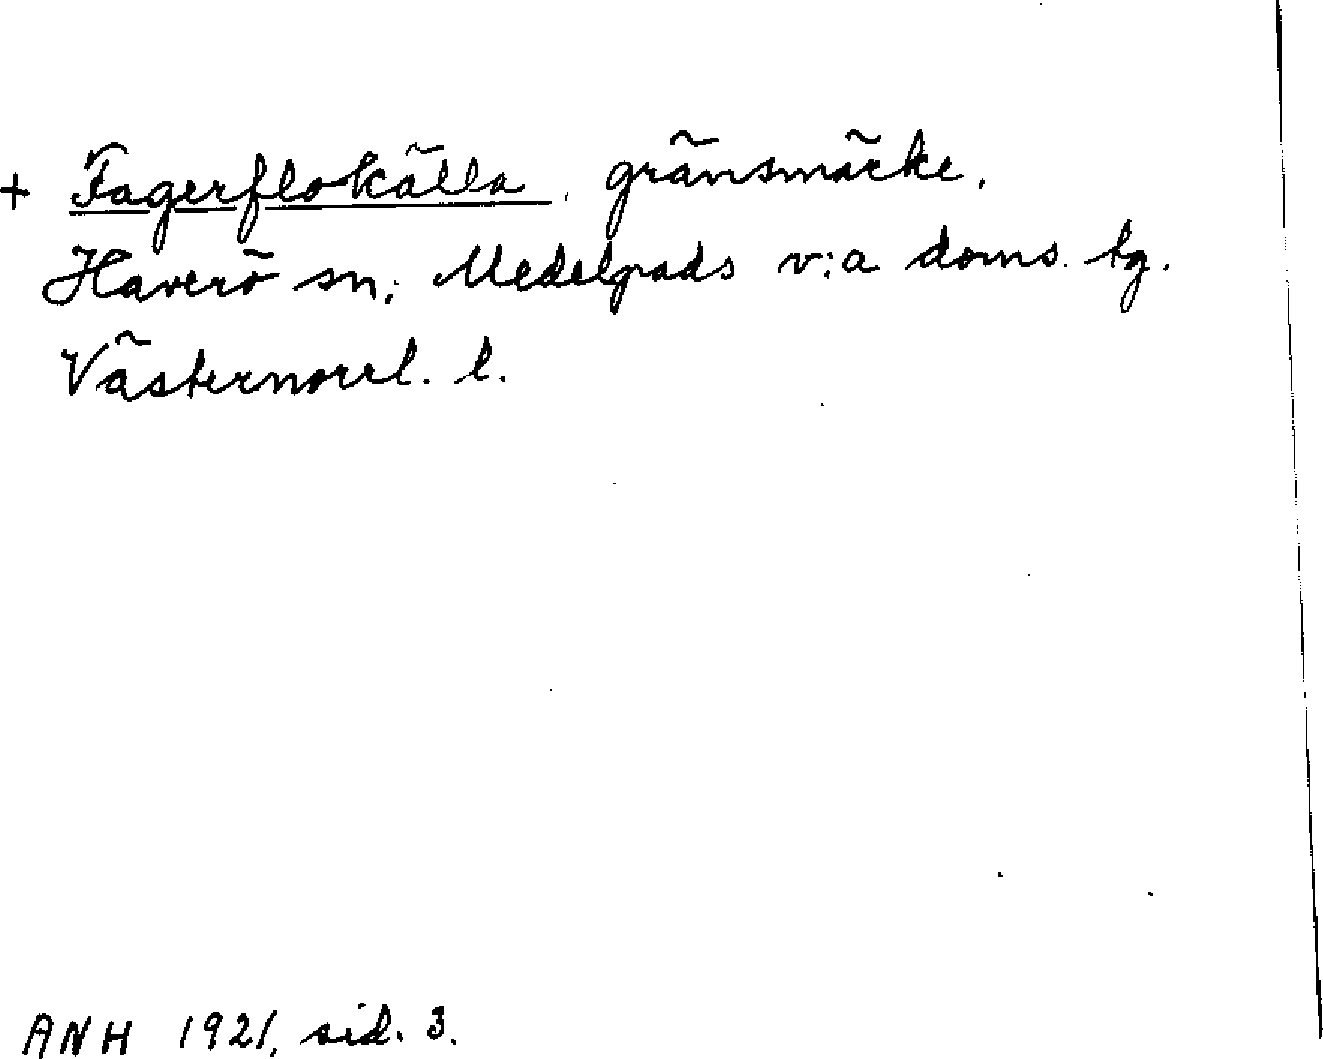 + Fagerflokälla, gränsmärke,
Haverö sn, Medelpads v:a doms. tg.
Västernorrl. l.
ANH 1921, sid. 3.